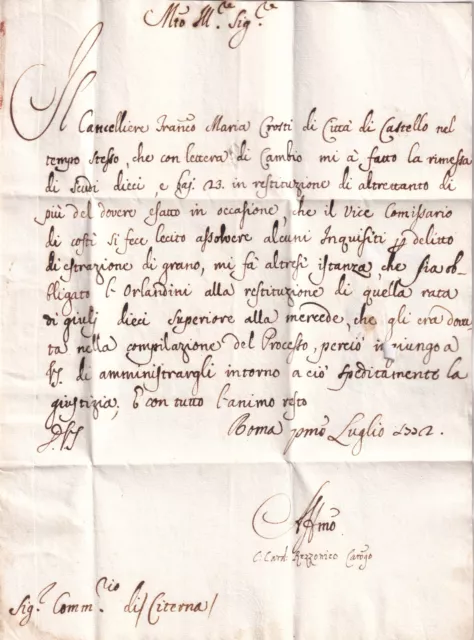 Mto Ill.re Sig.re
Il Cancelliere Franc.o Maria Crosti di Città di Castello nel
tempo stesso, che con lettera di Cambio mi à fatto la rimessa
di scudi dieci, e baj. 23. in restituzione di altrettanto di
più del dovere esatto in occasione, che il Vice Comissario
di costì si fece lecito assolvere alcuni Inquisiti p delitto
di estrazione di grano, mi fà altresì istanza, che sia ob
bligato l'Orlandini alla restituzione di quella rata
di giulj dieci superiore alla mercede, che gli era dovu
ta nella compilazione del Processo, perciò ingiungo a
VS. di amministrargli intorno a ciò speditamente la
giustizia, E con tutto l'animo resto
D. VS Roma pmo Luglio
Affmo
C. Card. Rezzonico Camgo
Sig.r Comm.rio di / Citerna /